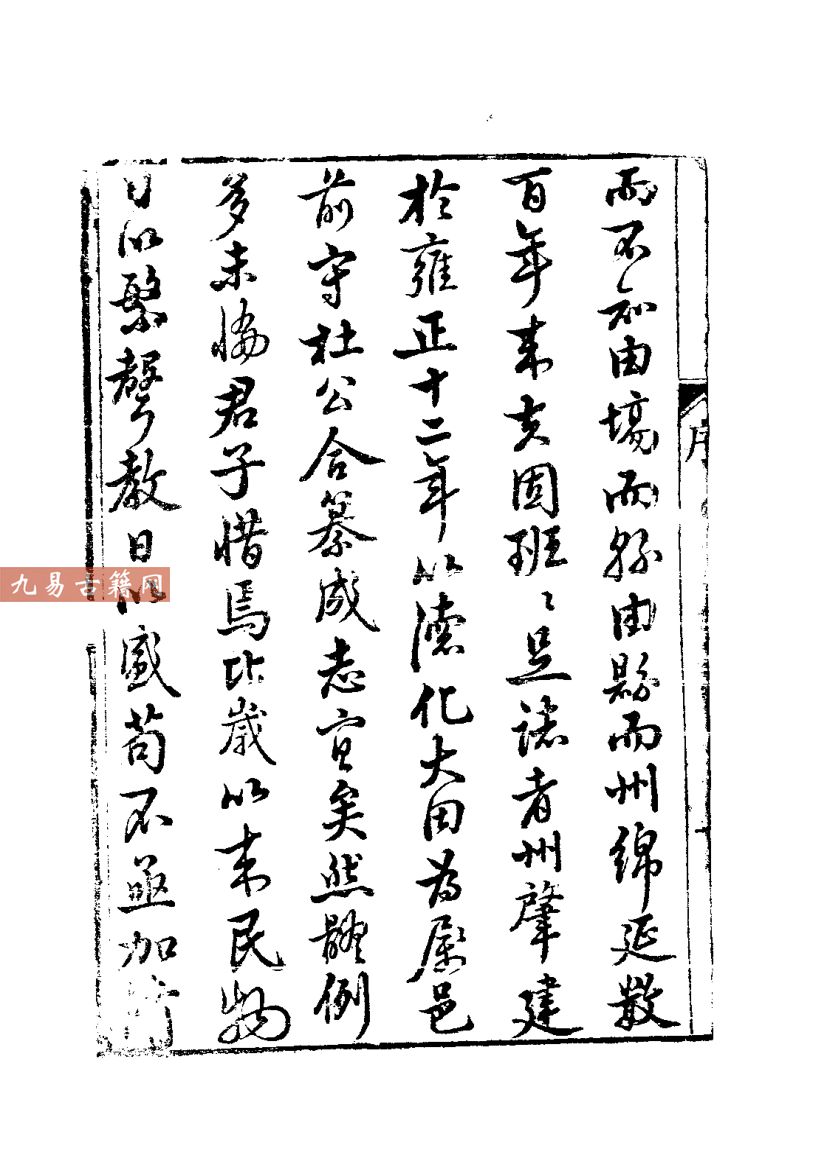 序
而不知由場而縣由縣而州綿延數
百年來固班〻足誌者州肇建
於雍正十二年以德化大田為屬邑
前守杜公合纂成志宜矣然體例
多未協君子惜焉比歲以來民物
日以繁聲教日以盛苟不亟加
九易古籍网